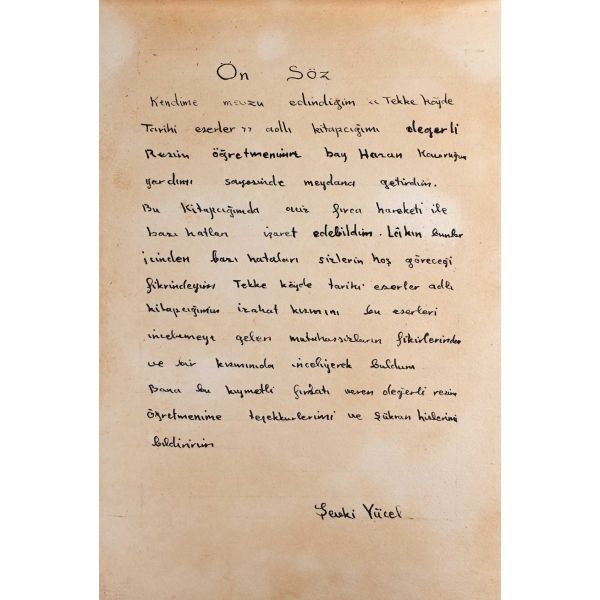 Ön Söz
Kendime mevzu edindiğim « Tekke köyde
Tarihi eserler » adlı kitapcığımı degerli
Resim öğretmenimiz bay Hasan
yardımı sayesinde meydana getirdim.
Bu Kitapcığımda fırca hareketi ile
bazı hatları işaret edebildim. Lâikin bunlar
icinden bazı hataları sizlerin hoş göreceği
fikrindeyim Tekke köyde tarihi eserler adlı
kitapcığımın izahat kısmını bu eserleri
incelemeye gelen mutahassızların fikirlerinden
ve bir kısmınıda inceliyerek buldum
Bana bu kıymetli fırsatı veren değerli resim
öğretmenime teşekkurlerimi ve şükran hislerimi
bildiririm
Şevki Yücel